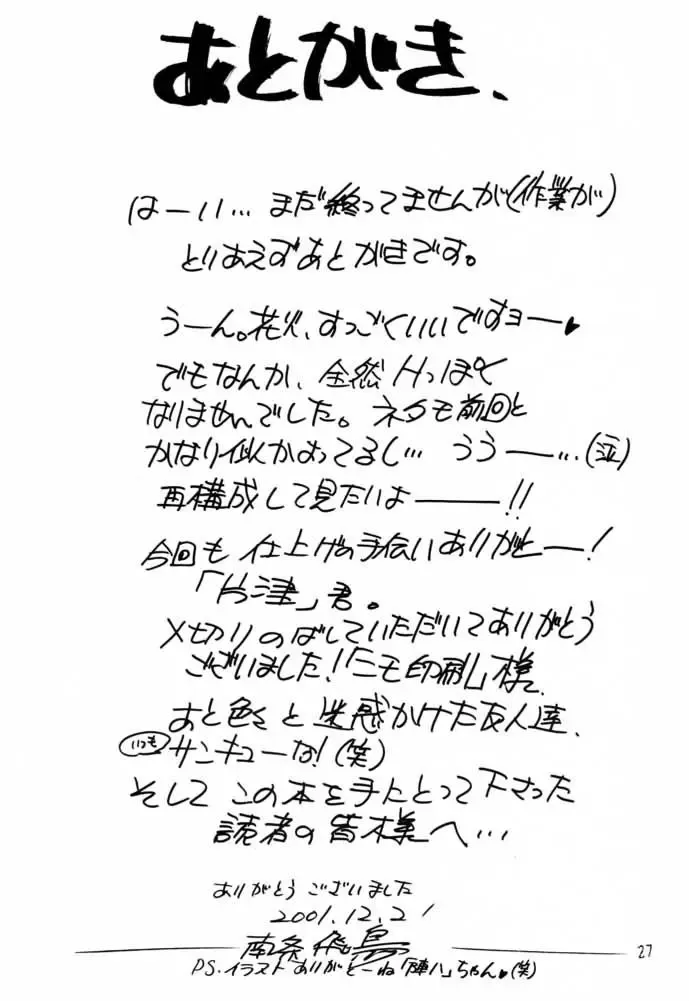 あとがき、
はーい… まだ終ってませんが(作業が)
とりあえずあとがきです。
うーん。花火、すっごくいいですヨー♥
でもなんか、全然Hっぽく
なりませんでした。ネタも前回と
かなり似かよってるし… うぅー…(泣)
再構成して見たいよ――!!
今回も仕上げの手伝いありがとー!
「片津」君。
〆切りのばしていただいてありがとう
ございました!「ニモ印刷」様、
あと色々と迷惑かけた友人達、
いつもサンキューな!(笑)
そしてこの本を手にとって下さった
読者の皆様へ…
ありがとうございました
2001.12.21
南条飛鳥
27
PS.イラストありがとーね「陣八」ちゃん♥(笑)